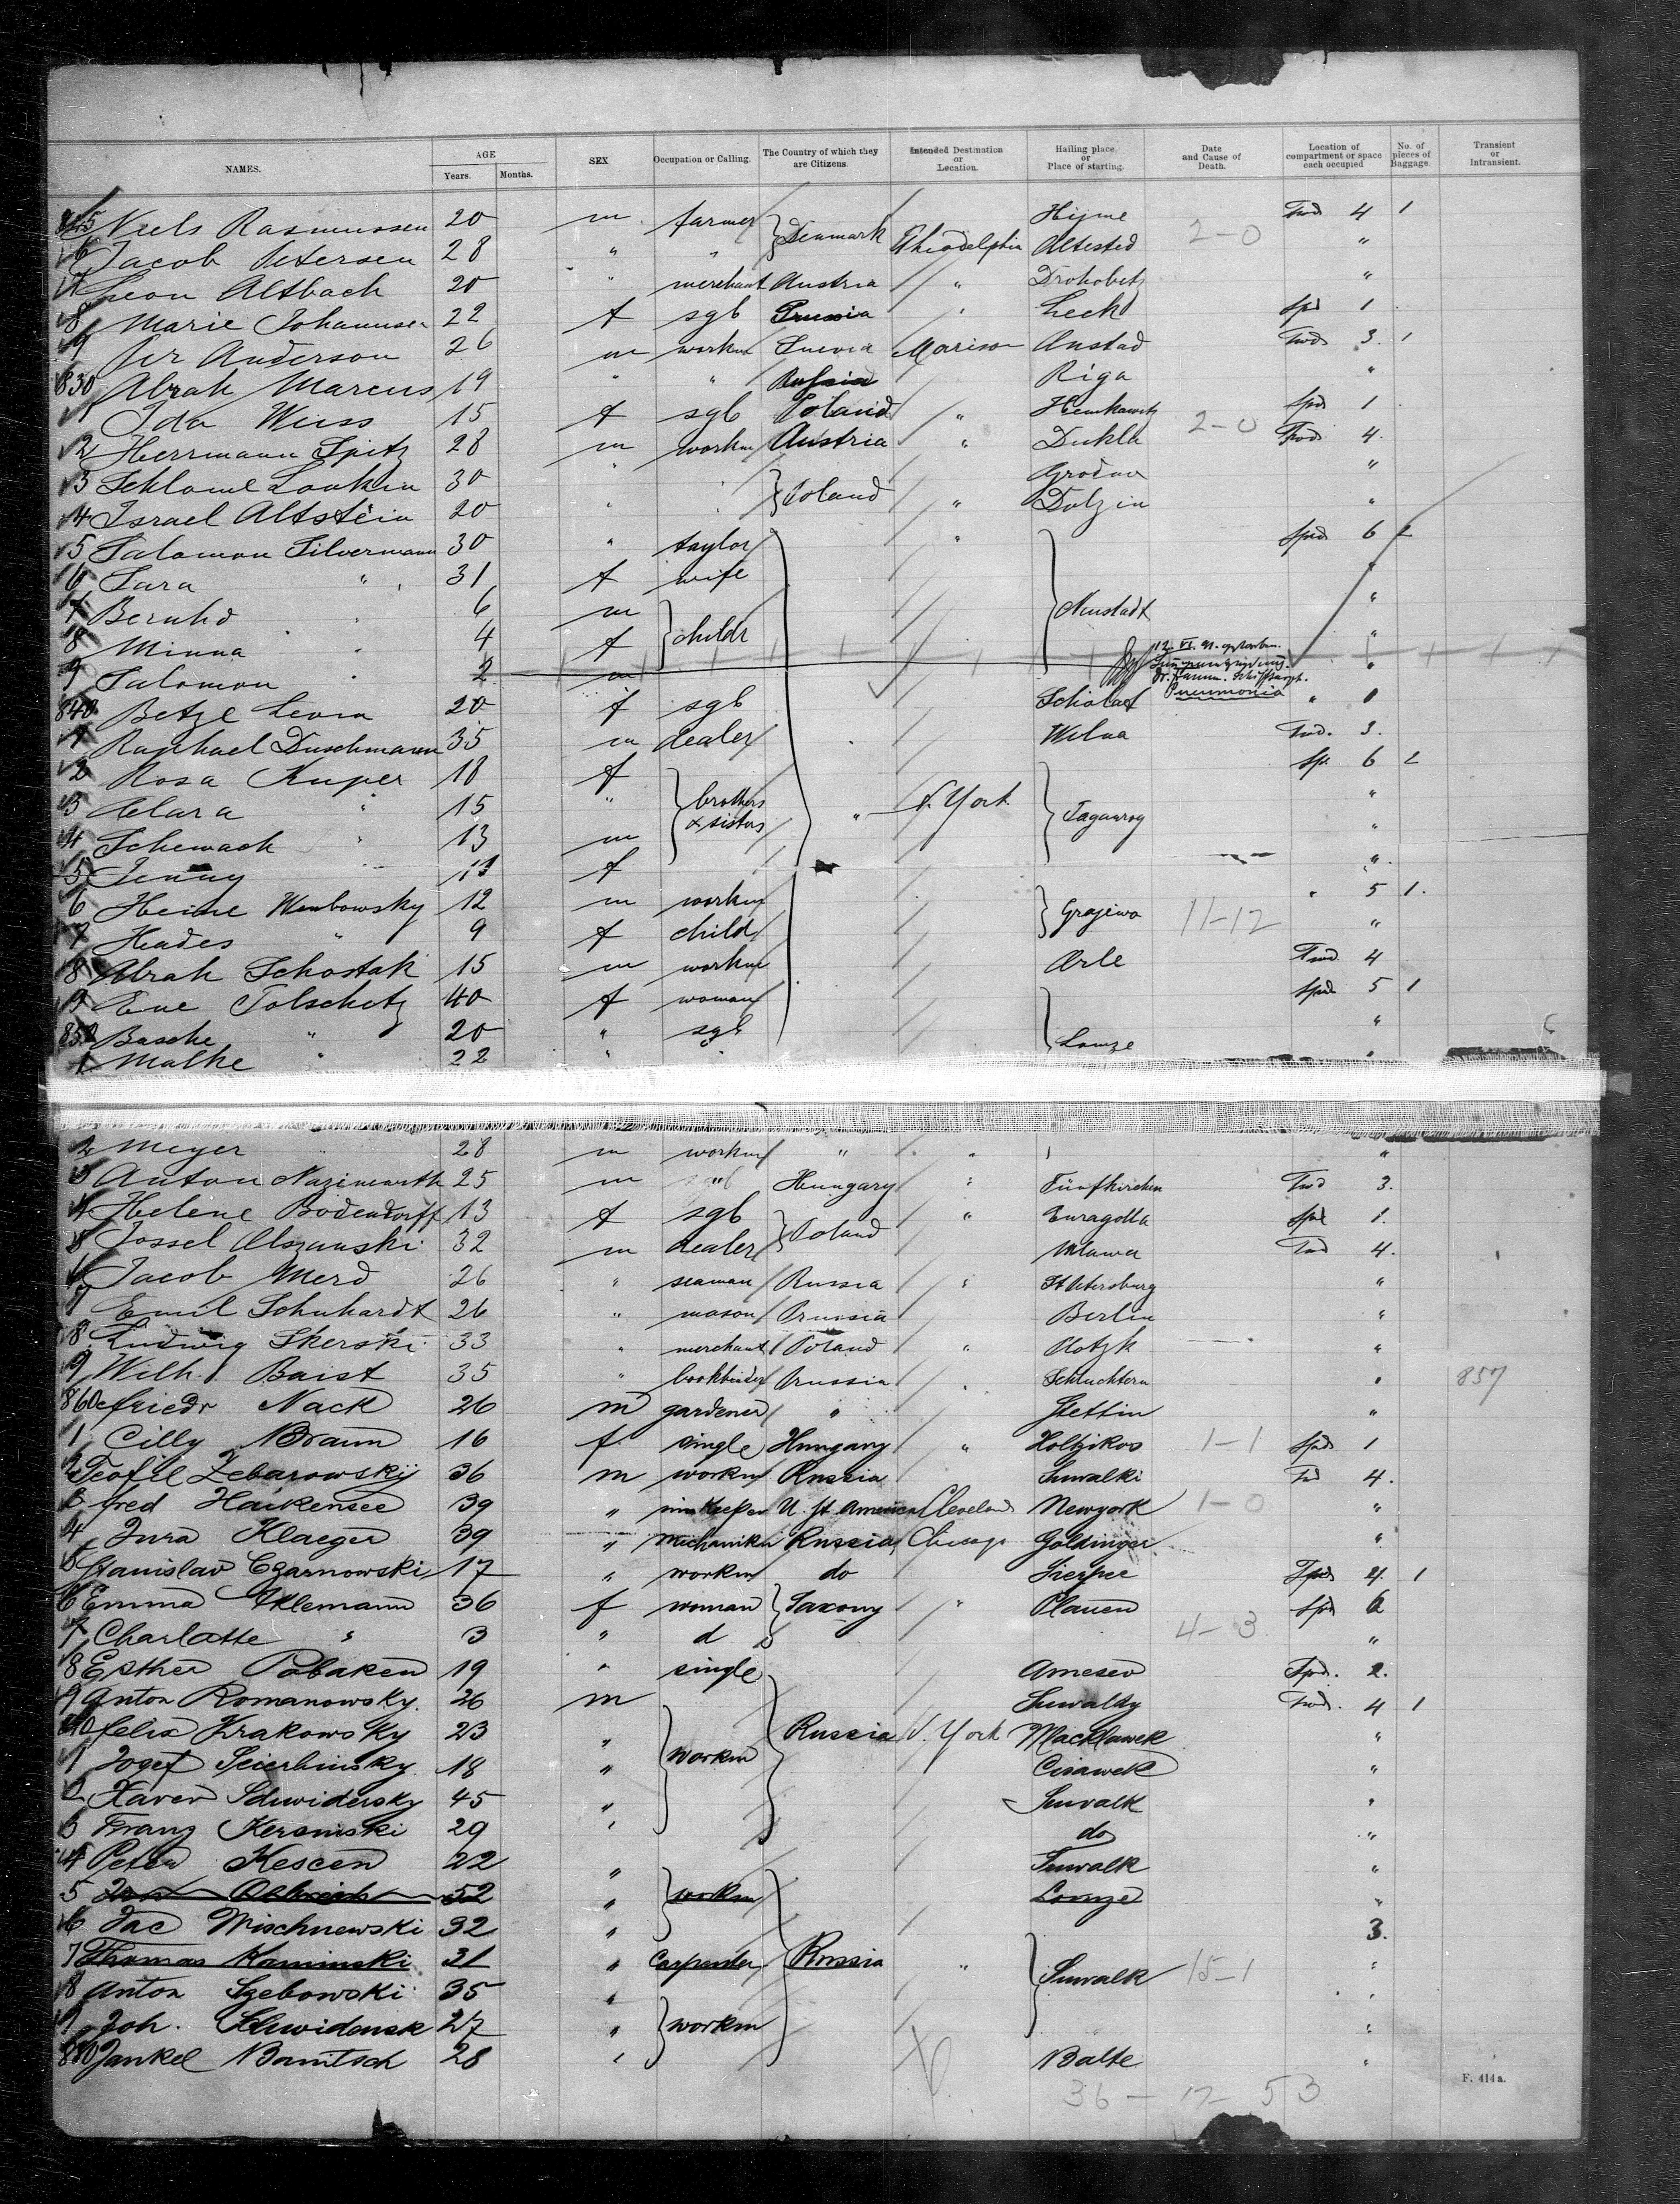 NAMES. AGE Years. Months. SEX Occupation or Calling. The Country of which they are Citizens. Intended Destination or Location. Hailing place or Place of starting. Date and Cause of Death. Location of compartment or space each occupied No. of pieces of Baggage. Transient or Intransient.
Niels Rasmussen 20 m farmer Denmark Phiadelphia 2-0 4 1
6 Jacob Petersen 28 " " Altested "
Leon Altbach 20 " merchant Austria " Drohobitz "
8 Marie Johannsen 22 f sgl Prussia " Leck Spd 1
9 Per Anderson 26 m workm Suevia Anstad Twd 3. 1
830 Abrah Marcus 19 " " Russia Riga "
1 Ida Weiss 15 f sgl Poland " Spd 1
2 Herrmann Spitz 28 m workm Austria " Dukla 2-0 Twd 4.
3 Schlome 30 " " Poland Grodno "
4 Israel Altstein 20 " " " Dolzin "
5 Salomon Silvermann 30 " taylor " Neustadt Spd 6 2
6 Sara " 31 f wife "
7 Bernhd 6 m childr "
8 Minna 4 f "
9 Salomon 2 m 12. VI. 91. gestorben. Pneumonia "
840 Betze Levin 20 f sgl " 1
1 Raphael Duschmann 35 m dealer Wilna Twd. 3.
2 Rosa Kuper 18 f brothers & sisters N. York Taganrog Sp. 6 2
3 Clara " 15 " "
4 Schewach 13 m "
5 Jenny 11 f "
6 Heine 12 m workm Grajewo 11-12 " 5 1.
7 Heades " 9 f child "
8 Abrah Schostak 15 m workm Arle Twd 4
9 Ene Tolschetz 40 f woman Lomze Spd 5 1
850 Basche " 20 " sgl "
1 Malke " 22 " "
2 Meyer 28 m workm " " "
3 Anton 25 m " Hungary " Fünfkirchen Twd 3.
4 Helene Bodendorff 13 f sgl Poland " Euragolla Spd 1.
5 Jossel Olszanski 32 m dealer Mlawa Twd 4.
6 Jacob Merd 26 " seaman Russia " St Petersburg "
7 Emil Schuhardt 26 " mason Prussia Berlin "
8 Ludwig Skerski 33 " merchant Poland " Plotzk "
9 Wilh. Baist 35 " bookbinder Prussia " Schluchtern " 857
860 Friedr Nack 26 m gardener " Stettin "
1 Cilly Braun 16 f single Hungary " 1-1 Spd 1
2 Teofil Zebarowskij 36 m workm Russia Suwalki Twd 4.
3 Fred Hackensee 39 " innkeeper U. St America Cleveland Newyork 1-0 "
4 Jura Klaeger 39 " Russia Chicago Goldingen "
5 Stanislav Czarnowski 17 " workm do Sierpce Twd 4. 1
6 Emma Aklemann 36 f woman Saxony " Plauen Spd 6
7 Charlotte " 3 " d 4-3 "
8 Esther Pabaken 19 " single Spd. 2.
9 Anton Romanowsky. 26 m workm Russia N. York Suwalky Twd. 4 1
870 Felix Krakowsky 23 " "
1 Josef 18 " Cisawek "
2 Xaver Schwidersky 45 " Suwalk "
3 Franz 29 " do "
4 Peter Kescen 22 " Suwalk "
5 52 " workm Lomze "
6 Jac Wischnewski 32 " 3.
7 Thomas Kaminski 31 " Carpenter Russia " Suwalk 15-1 "
8 Anton Szebowski 35 " "
9 Joh. 27 " workm "
880 Jankel 28 " Balte "
36 - 17 - 53
F. 414a.